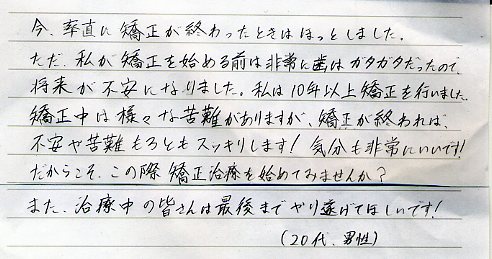 今、率直に矯正が終わったときはほっとしました。
ただ、私が矯正を始める前は非常に歯はガタガタだったので、
将来が不安になりました。私は10年以上矯正を行いました。
矯正中は様々な苦難がありますが、矯正が終われば、
不安や苦難もろともスッキリします!気分も非常にいいです!
だからこそ、この際矯正治療を始めてみませんか?
また、治療中の皆さんは最後までやり遂げてほしいです!
(20代、男性)